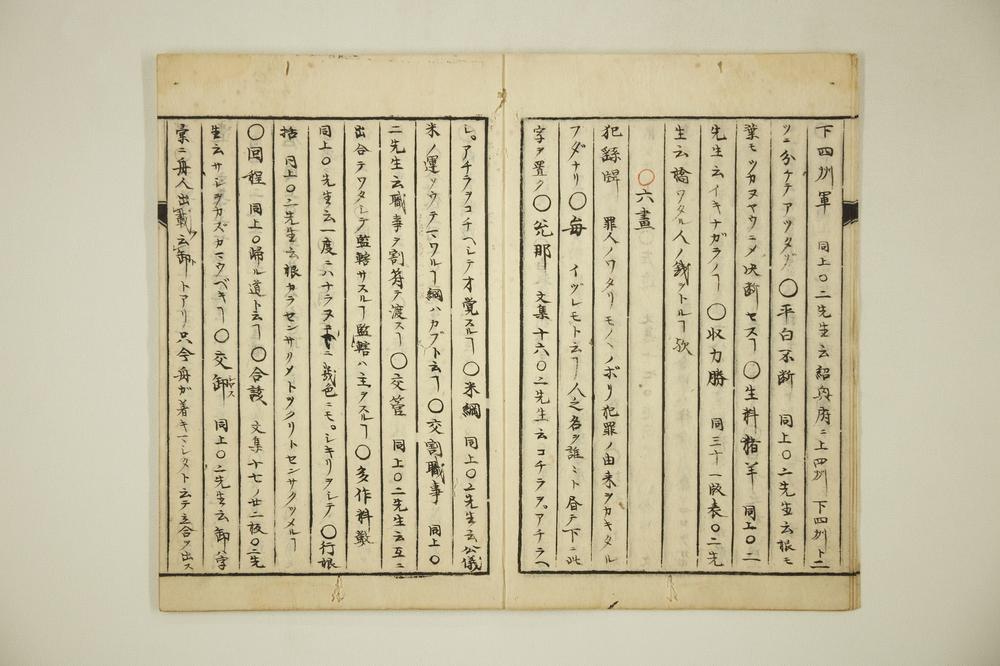 下四州軍 同上〇二先生云紹興府ニ上四州 下四州ト二
ツニ分チテアツタゾ 〇平白不断 同上〇二先生云根モ
葉モツカヌヤウニメ决断セスヿ 〇生料猪羊 同上〇二
先生云イキナガラノヿ 〇收力勝 同三十一版表〇二先
生云橋ワタル人ノ銭ヲトルヿ欤
〇六畫
犯繇牌 罪人ノワタリモノヘノボリ犯罪ノ由来ヲカキタル
フダナリ 〇毎 イヅレモト云ヿ人之名ヲ誰ミト昏テ下ニ此
字ヲ置ク 〇兊那 文集十六〇二先生云コチラヲアチラヘ
シ。アチラヲコチヘシテ才覚スルヿ 〇米綱 同上〇二先生云公儀
米ノ運ソウテマワルヿ綱ハカブト云ヿ 〇交割職事 同上〇
二先生云職事ヲ割符テ渡スヿ 〇交管 同上〇二先生云互ニ
出合テワタシテ監轄サスルヿ監轄ハ主ヲスルヿ 〇多作料數
同上〇先生云一度ニハナラヌ ニ幾色ニモ。シキリヲシテ 〇行根
括 同上〇二先生云根カラセンサクメトツクリトセンサクツメルヿ
〇回程 同上〇帰ル道ト云ヿ 〇合該 文集十七ノ廿二枚〇二先
生云サシツカズカマウベキヿ 〇交卸 同上〇二先生云卸ハ字
彙ニ舟人出載云卸トアリ只今舟ガ着キマシタト云テ立合ヲ出ス